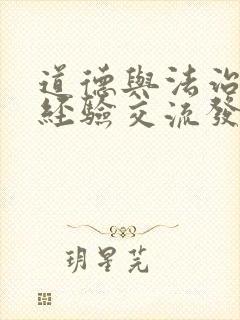 道德與法治
經驗交流發
玥星芫